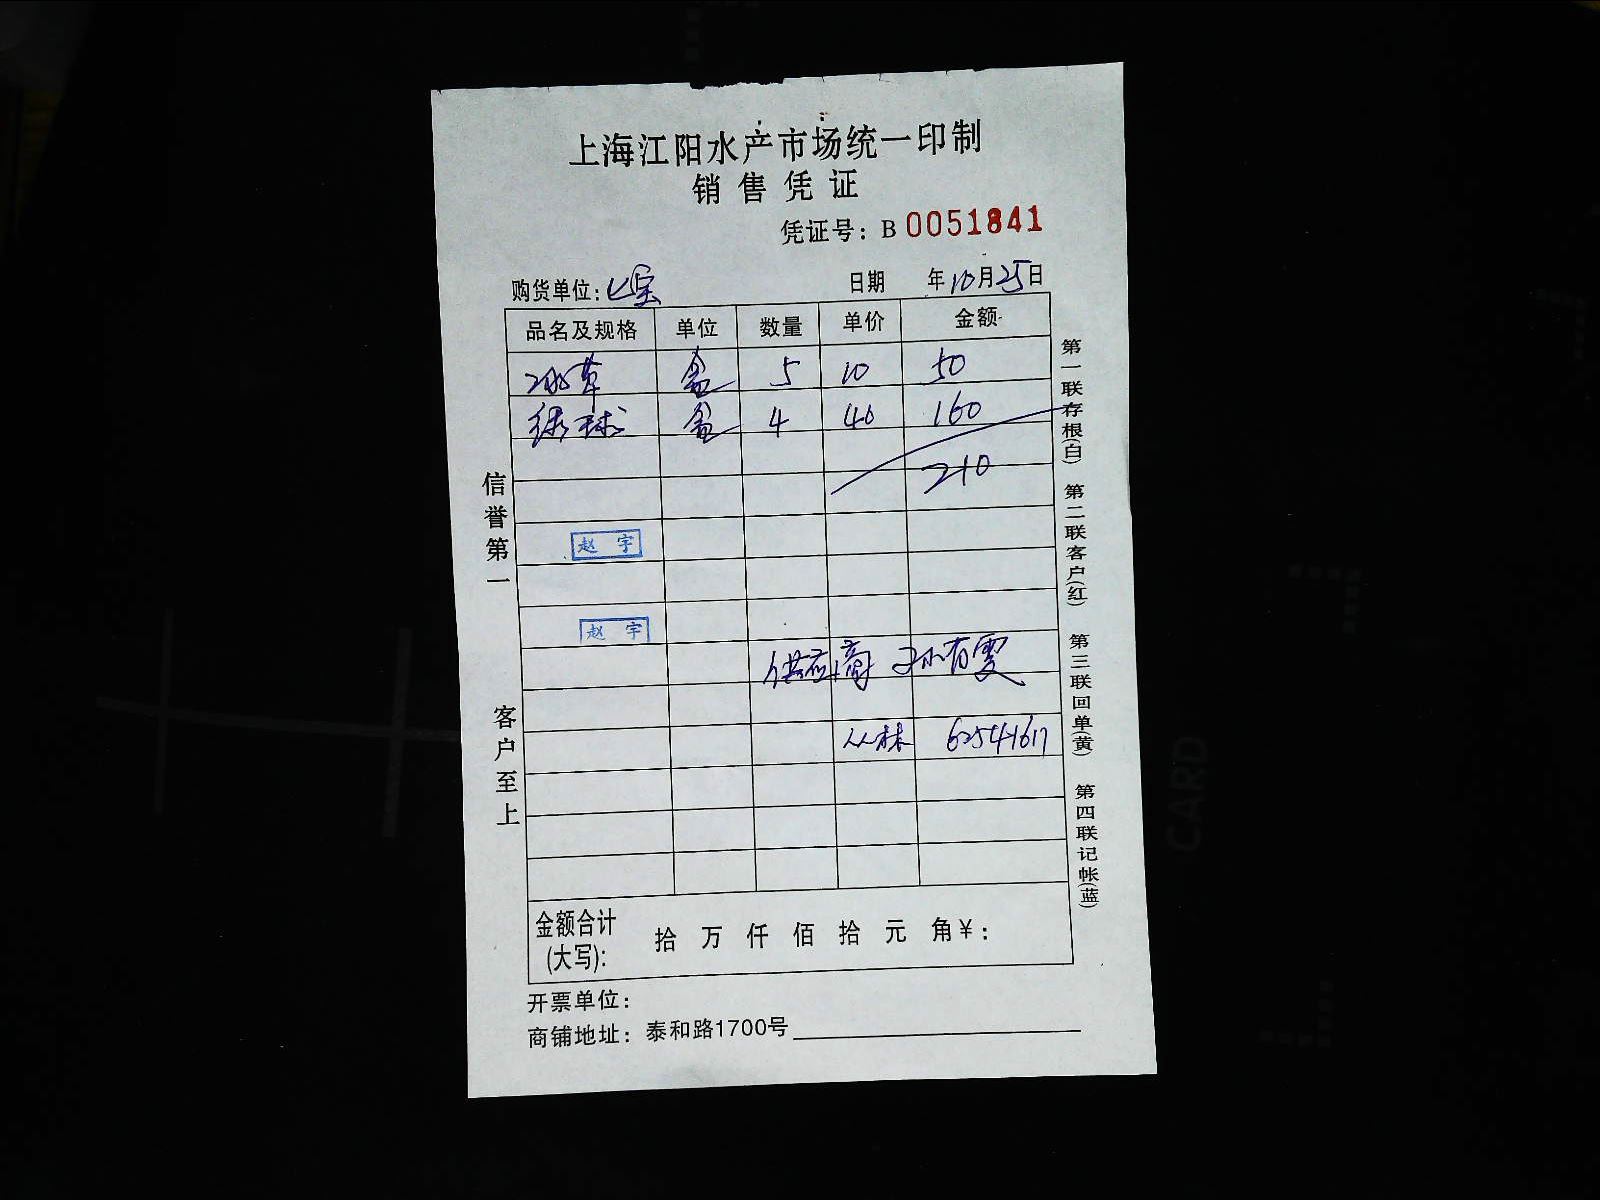 上海江阳水产市场统一印制
销售凭证
凭证号：B 0051841
购货单位：七宝 日期 年10月25日
品名及规格 单位 数量 单价 金额
冰草 盒 5 10 50
绣球 盒 4 40 160
210
赵宇
赵宇
供应商 孙有雯
丛林 62541617
金额合计(大写)： 拾 万 仟 佰 拾 元 角¥：
开票单位：
商铺地址：泰和路1700号
信誉第一
客户至上
第一联存根(白)
第二联客户(红)
第三联回单(黄)
第四联记帐(蓝)